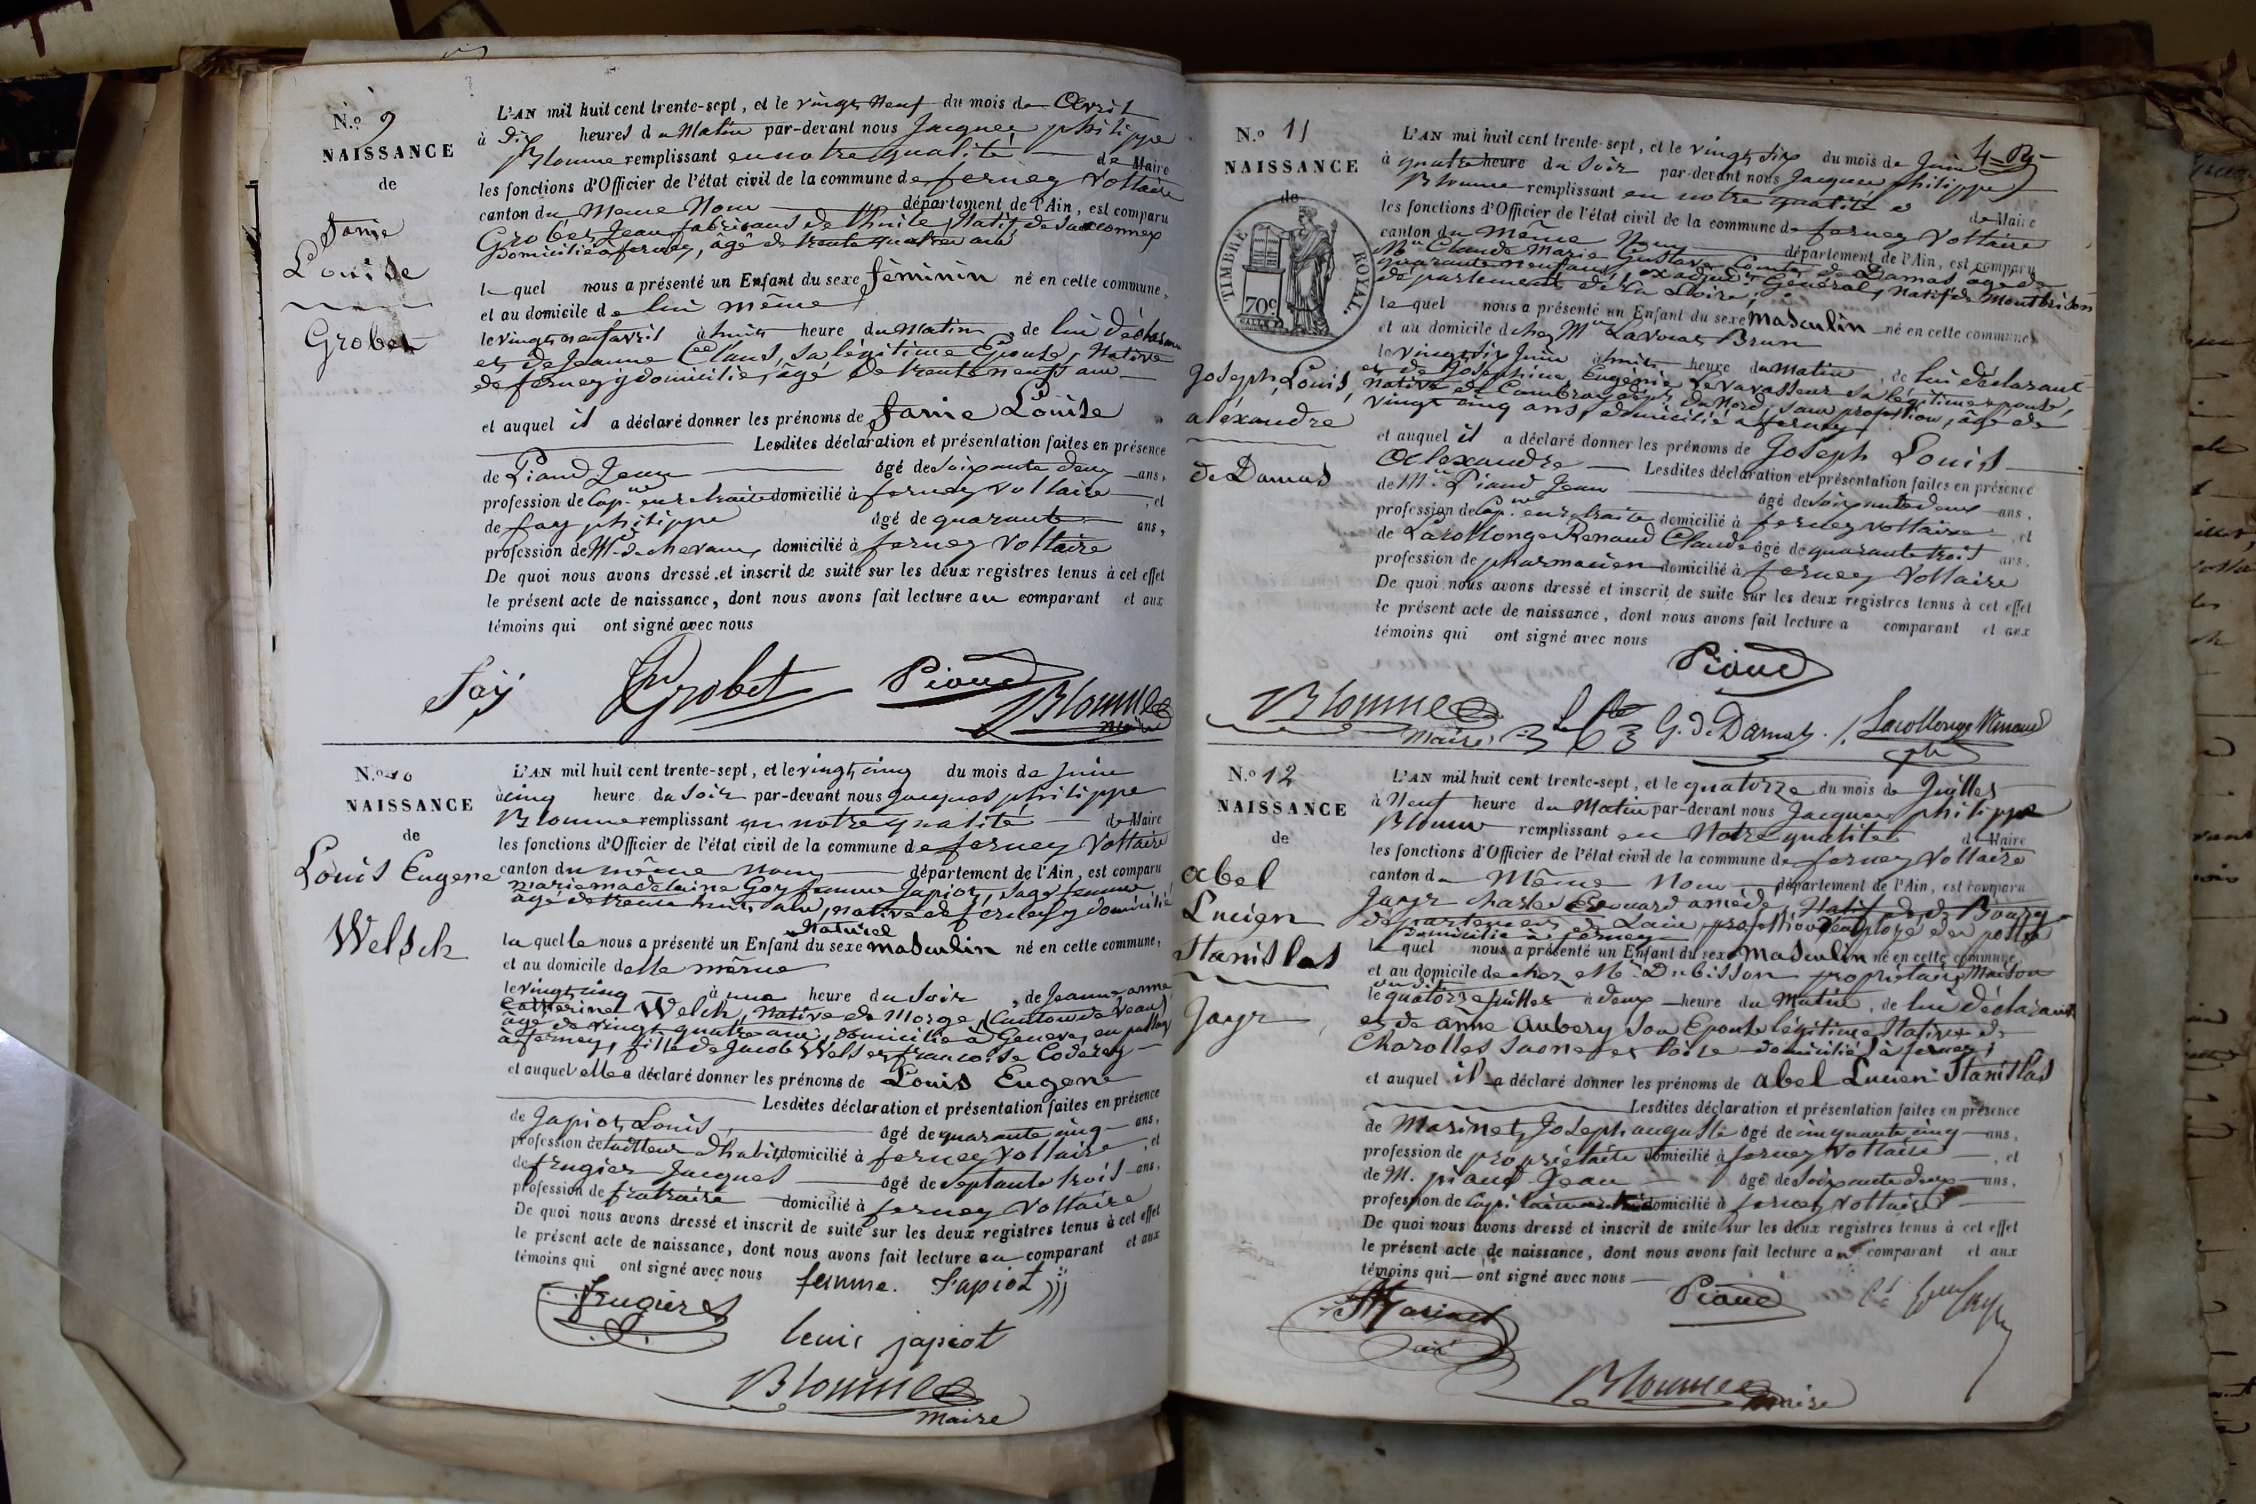 N.o 9
NAISSANCE
de
Fanie
Louise
Grobet
L'AN mil huit cent trente-sept, et le vingt Neuf du mois de Avril
à Dix heures du Matin par-devant nous Jacques philippe
Blonme remplissant en notre qualité de Maire
les fonctions d'Officier de l'état civil de la commune de ferney Voltaire
canton du Meme Nom département de l'Ain, est comparu
Grobet, Jean fabricant de Natif de
domicilié à ferney, âgé de trente quatre ans
le quel nous a présenté un Enfant du sexe féminin né en cette commune,
et au domicile de lui même
le vingt neuf avril à huit heure du Matin, de lui déclarant
et de Jeanne Claus, sa légitime Epouse, Native
de ferney y domicilié, âgé de trente neuf ans
et auquel il a déclaré donner les prénoms de Fanie Louise
Lesdites déclaration et présentation faites en présence
de Piaud Jean âgé de soixante deux ans,
profession de Cap.ne en retraite domicilié à ferney Voltaire, et
de fay philippe âgé de quarante ans,
profession de Md de chevaux domicilié à ferney Voltaire
De quoi nous avons dressé et inscrit de suite sur les deux registres tenus à cet effet
le présent acte de naissance, dont nous avons fait lecture au comparant et aux
témoins qui ont signé avec nous
fay Grobet Piaud
Blonme
Maire
N.o 10
NAISSANCE
de
Louis Eugene
Welsch
L'AN mil huit cent trente-sept, et le vingt cinq du mois de Juin
à cinq heure du Soir par-devant nous Jacques philippe
Blonme remplissant en notre qualité de Maire
les fonctions d'Officier de l'état civil de la commune de ferney Voltaire
canton du même Nom département de l'Ain, est comparu
marie madelaine Goy femme Japiot, sage femme
âgé de trente huit ans, native de ferney y domicilié
Naturel
la quelle nous a présenté un Enfant du sexe masculin né en cette commune,
et au domicile delle même
le vingt cinq à une heure du Soir, de Jeanne anne
Catherine Welch, native de Morge (Canton de Veaud)
âgé de vingt quatre ans, domicilié à Geneve, en passage
à ferney, fille de Jacob Wels et francoise Coderey
et auquel elle a déclaré donner les prénoms de Louis Eugene
Lesdites déclaration et présentation faites en présence
de Japiot, Louis âgé de quarante cinq ans,
profession de tailleur d'habit, domicilié à ferney Voltaire, et
de frugier Jacques âgé de septante trois ans,
profession de domicilié à ferney Voltaire
De quoi nous avons dressé et inscrit de suite sur les deux registres tenus à cet effet
le présent acte de naissance, dont nous avons fait lecture au comparant et aux
témoins qui ont signé avec nous femme Japiot
frugier
louis japiot
Blonme
maire
N.o 11
NAISSANCE
de
TIMBRE ROYAL.
70c.
Joseph, Louis,
alexandre
de Damas
L'AN mil huit cent trente-sept, et le vingt six du mois de Juin
à quatre heure du Soir par-devant nous Jacques philippe
Blonme remplissant en notre qualité de Maire
les fonctions d'Officier de l'état civil de la commune de ferney Voltaire
canton du même Nom département de l'Ain, est comparu
Claude Marie Gustave Comte de Damas âgé de
quarante neuf ans, ex adjud.t Général, natif de Montbrison
département de la Loire,
le quel nous a présenté un Enfant du sexe masculin né en cette commune
et au domicile de chez Brun
le vingt six Juin à huit heure du Matin, de lui déclarant
et de Josephine Eugénie Levavasseur sa légitime epouse,
native de Cambray dep.t du Nord, sans profession, âgé de
vingt cinq ans, domicilié à ferney
et auquel il a déclaré donner les prénoms de Joseph Louis
Alexandre Lesdites déclaration et présentation faites en présence
de Mr. Piaud Jean âgé de soixante deux ans,
profession de Cap.ne en retraite domicilié à ferney Voltaire, et
de Lacollonge Renaud Claude âgé de quarante trois ans,
profession de pharmacien domicilié à ferney Voltaire
De quoi nous avons dressé et inscrit de suite sur les deux registres tenus à cet effet
le présent acte de naissance, dont nous avons fait lecture a comparant et aux
témoins qui ont signé avec nous
Piaud
Blonme
Maire, G. de Damas Lacollonge Renaud
N.o 12
NAISSANCE
de
abel
Lucien
Stanislas
Jayr
L'AN mil huit cent trente-sept, et le quatorze du mois de Juillet
à Neuf heure du Matin par-devant nous Jacques philippe
Blonme remplissant en Notre qualité de Maire
les fonctions d'Officier de l'état civil de la commune de ferney Voltaire
canton du Même Nom département de l'Ain, est comparu
Jayr Charles Edouard amédé, Natif de Bourg
département de Lain, profession d'employé des postes
domicilié à ferney
le quel nous a présenté un Enfant du sexe Masculin né en cette commune
et au domicile de chez Mr. Dubisson propriétaire Maison
le quatorze juillet à deux heure du Matin, de lui déclarant
et de anne aubery son Epouse légitime Native de
Charolles Saone et Loire domicilié à ferney
et auquel il a déclaré donner les prénoms de abel Lucien Stanislas
Lesdites déclaration et présentation faites en présence
de Marinet, Joseph auguste âgé de cinquante cinq ans,
profession de propriétaire domicilié à ferney Voltaire, et
de M. piaud Jean âgé de soixante deux ans,
profession de domicilié à ferney Voltaire
De quoi nous avons dressé et inscrit de suite sur les deux registres tenus à cet effet
le présent acte de naissance, dont nous avons fait lecture au comparant et aux
témoins qui ont signé avec nous
Piaud
Marinet
Blonme
maire